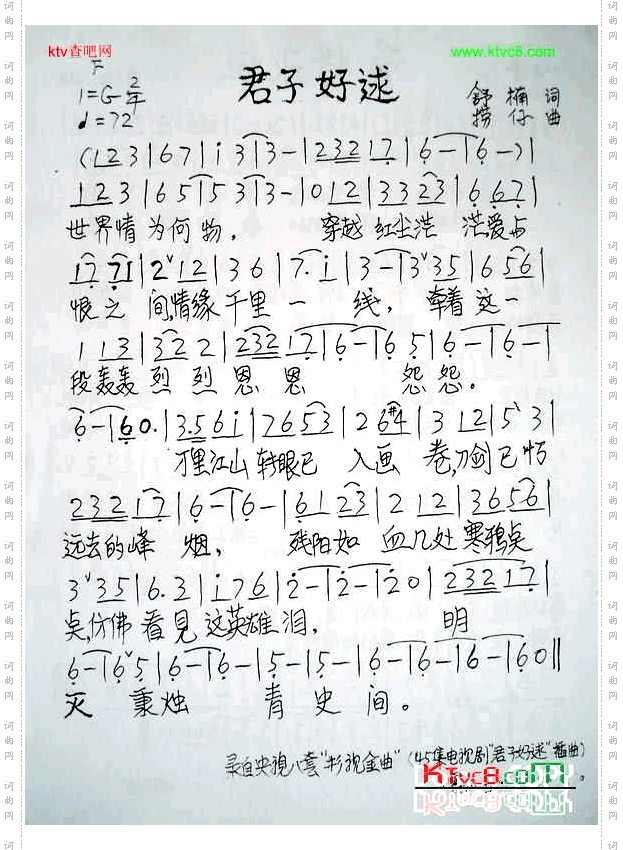 ktv查吧网
www.ktvc8.com
君子好逑
F
1=G 2/4
♩=72
舒楠 词
捞仔 曲
(1 2 3|6 7|i 3|3-|2 3 2 2 1 7|6-|6-)|
1 2 3|6 5|5 3|3-|0 1 2|3 3 2 3|6 6 7|
世界情为何物, 穿越红尘茫 茫爱与
1 7 7 1|2 1 2|3 6|7. i|3-|3 3 5|6 5 6|
恨之 间,情缘千里一 线, 牵着这一
1 1 3|3 2 2|2 3 2 1 7|6-|6 5|6-|6-|
段轰轰烈烈恩恩 怨怨。
6-|6 0.|3. 5 6 i|7 6 5 3|2 6 #4|3 1 2|5 3|
万里江山转眼已 入画卷,刀剑已忾
2 3 2 2 1 7|6-|6-|6 1 2 3|2 1 2|3 6 5 6|
远去的峰烟, 残阳如血几处寒鸦桌
3 3 5|6. 3|i 7 6|2-|2-|2 0|2 3 2 2 1 7|
桌,仿佛看见这英雄泪, 明
6-|6 5|6-|6-|5-|5-|6-|6-|6-|6 0||
灭 秉烛 青史间。
录自央视八套"影视金曲"(45集电视剧"君子好逑"插曲)
KTvc8.com
COPY
词曲网